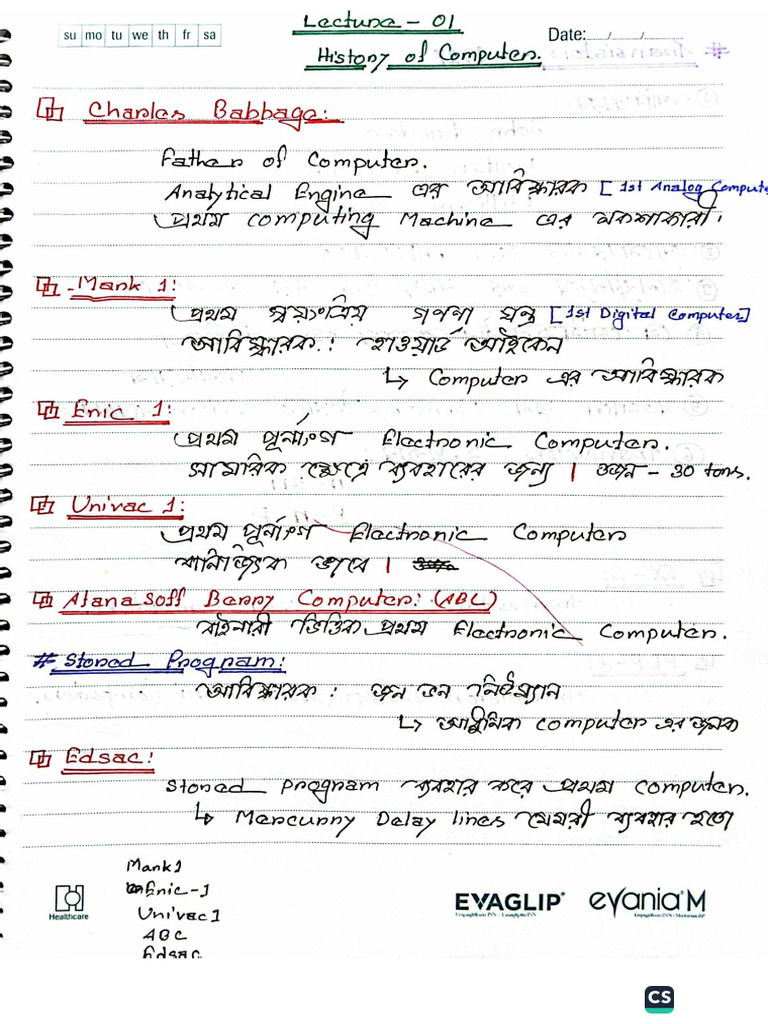 su mo tu we th fr sa
Lecture - 01
Date: / / /
History of Computer.
Charles Babbage:
Father of Computer.
Analytical Engine এর আবিষ্কারক [1st Analog Compute
প্রথম Computing Machine এর নকশাকারী।
- Mark 1:
প্রথম স্বয়ংক্রিয় গণণা যন্ত্র [1st Digital Computer]
আবিষ্কারক : হাওয়ার্ড আইকেন
↳ Computer এর আবিষ্কারক
Enic 1:
প্রথম পূর্নাংগ Electronic Computer.
সামরিক ক্ষেত্রে ব্যবহারের জন্য । ওজন - 30 tons.
Univac 1:
প্রথম পূর্নাংগ Electronic Computer
বানিজ্যিক ভাবে ।
Atanasoff Berry Computer: (ABC)
বাইনারী ভিত্তিক প্রথম Electronic Computer.
# Stored Program:
আবিষ্কারক : জন ভন নিউম্যান
↳ আধুনিক Computer এর জনক
Edsac:
Stored Program ব্যবহার করে প্রথম Computer.
↳ Mercurry Delay lines মেমরী ব্যবহার হতো
Mark 1
Enic-1
Univac 1
ABC
Edsac
Healthcare
EVAGLIP
evania M
CS